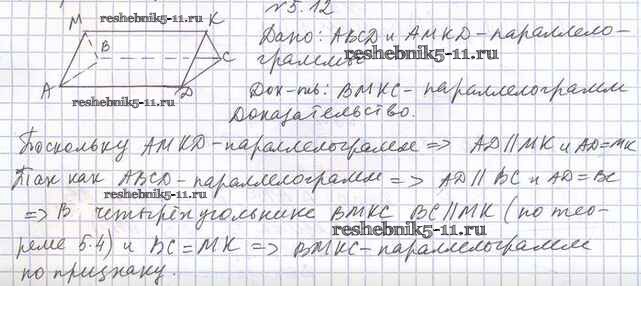 №5.12
M
reshebnik5-11.ru
K
B
C
A
D
reshebnik5-11.ru
Дано: ABCD и AMKD-параллело-
reshebnik5-11.ru
граммы
Док-ть: BMKC- параллелограмм
Доказательство.
Поскольку AMKD-параллелограмм => AD||MK и AD=MK
Так как ABCD-параллелограмм => AD||BC и AD=BC
=> В четырёхугольнике BMKC BC||MK (по тео-
reshebnik5-11.ru
реме 5.4) и BC=MK => BMKC-параллелограмм
по признаку.